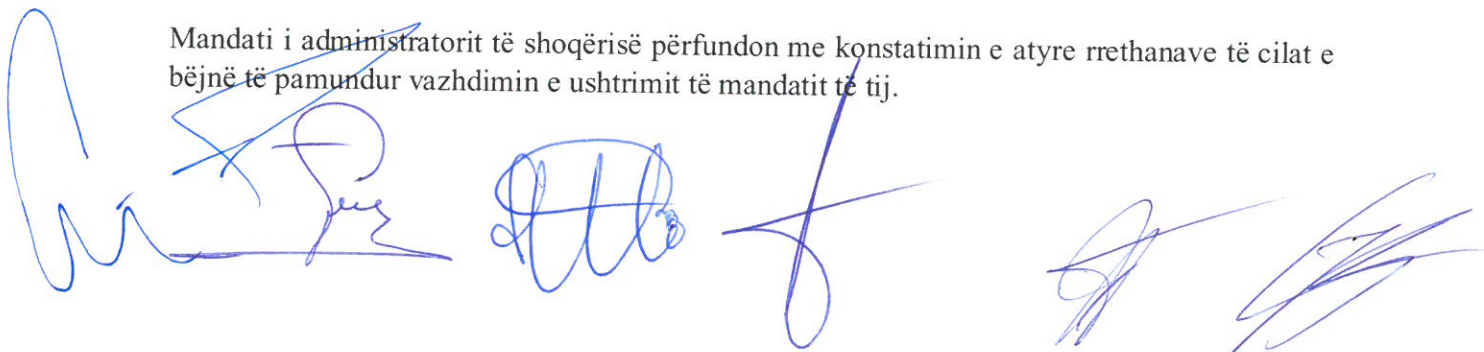 Mandati i administratorit të shoqërisë përfundon me konstatimin e atyre rrethanave të cilat e
bëjnë të pamundur vazhdimin e ushtrimit të mandatit të tij.